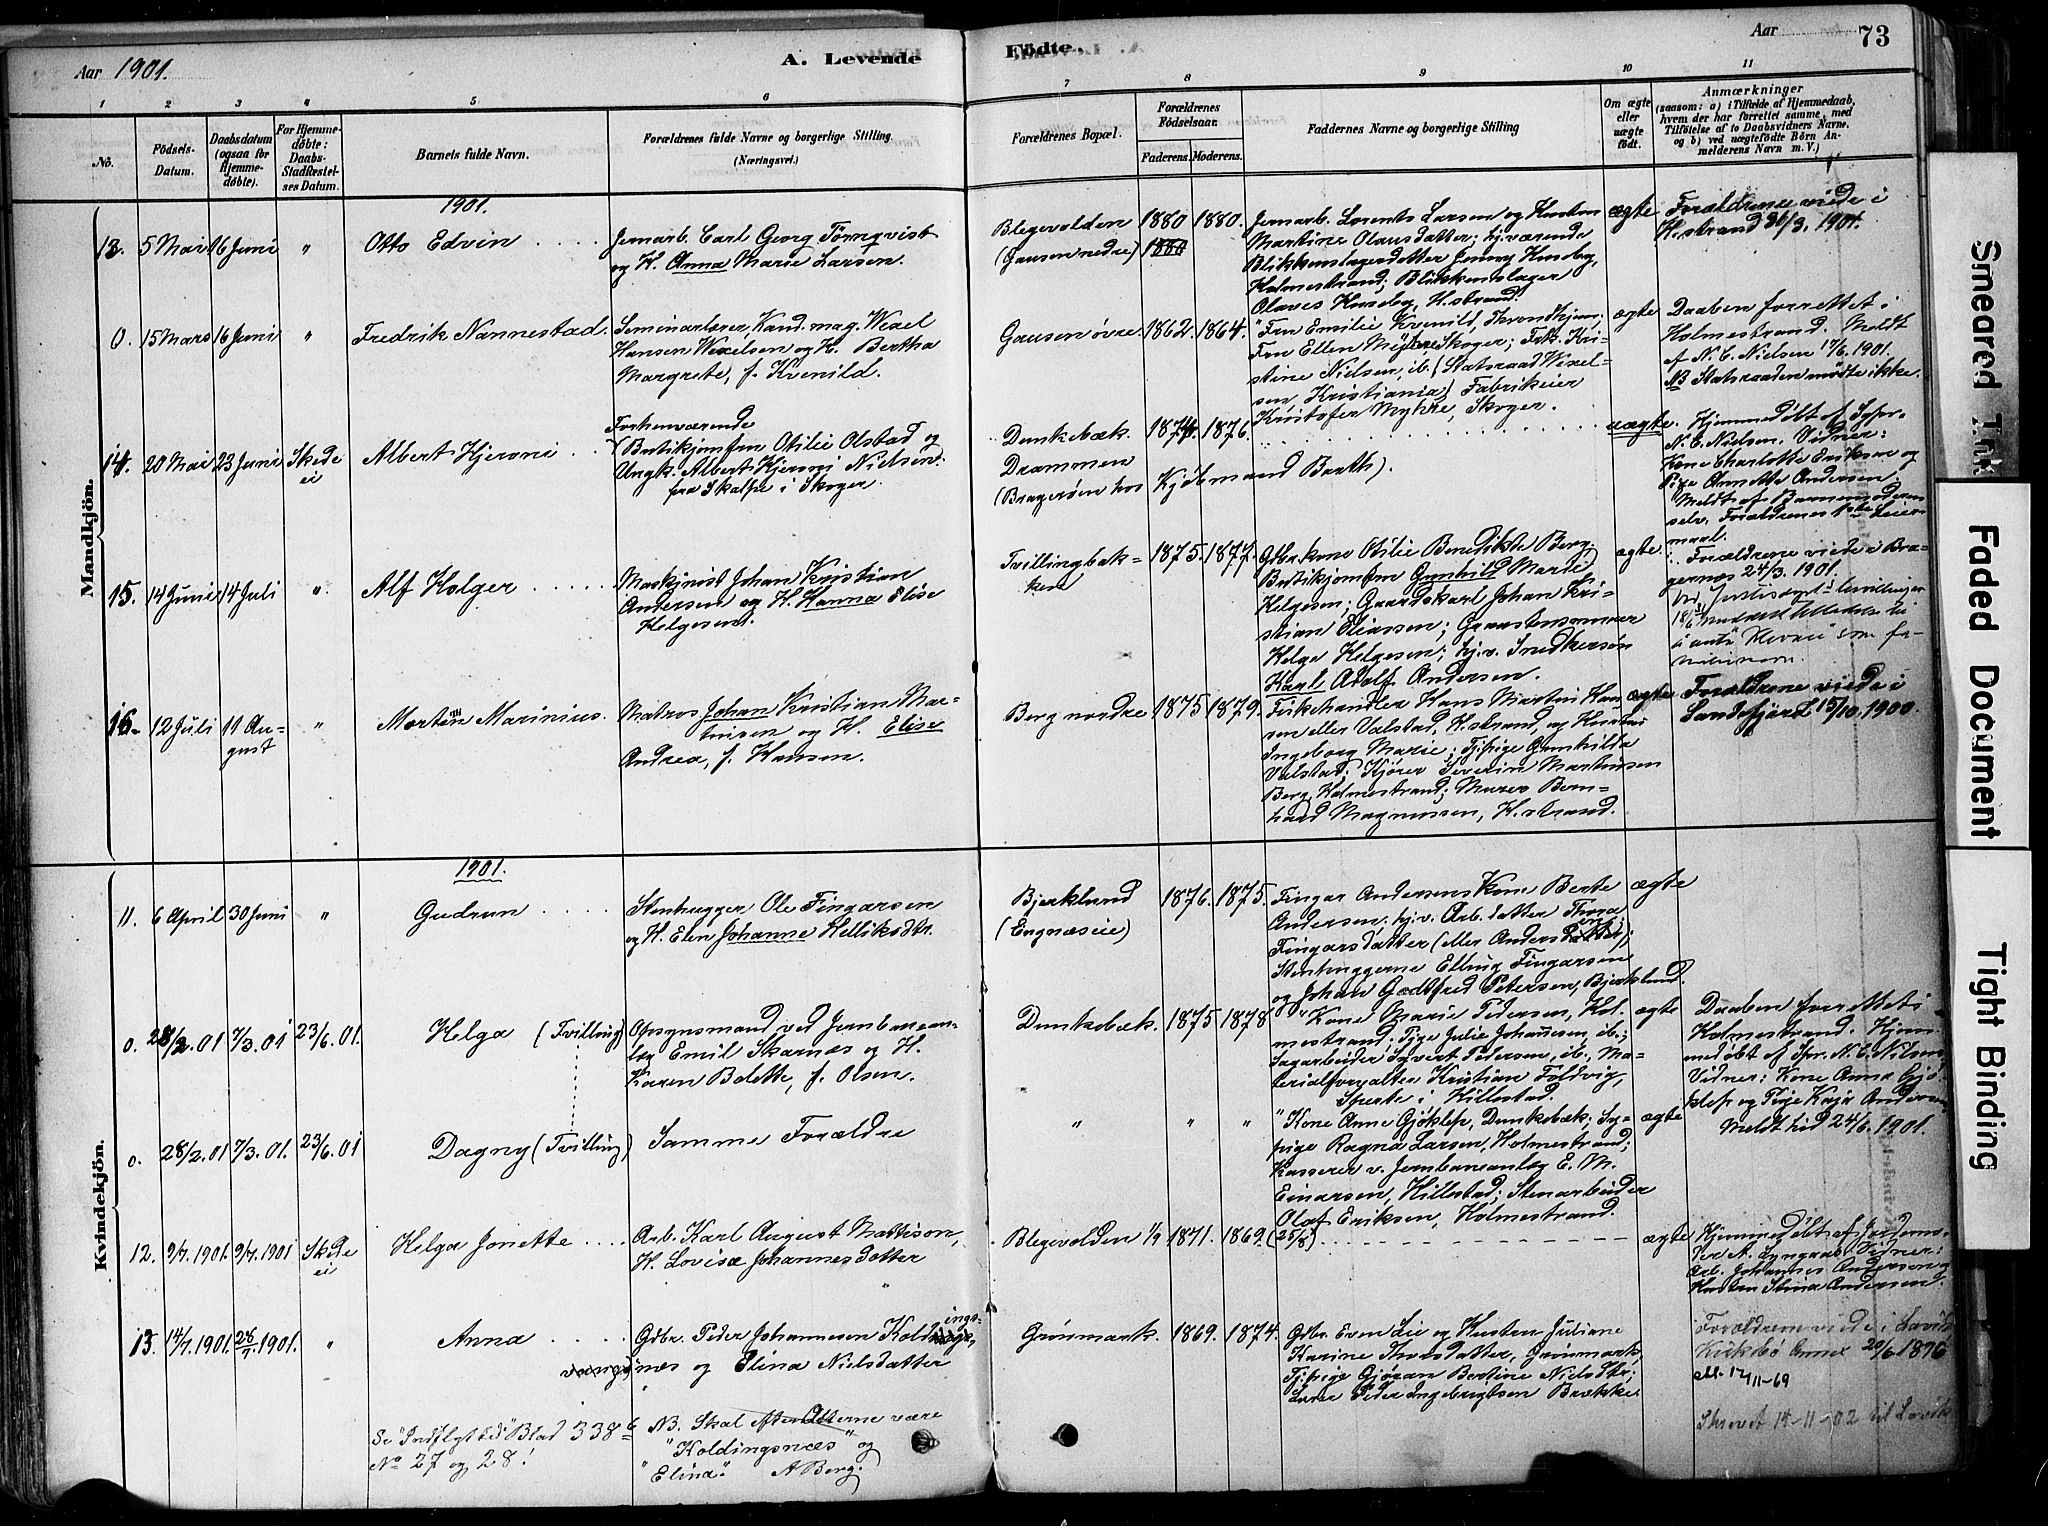 Aar 1901.
A. Levende
Födte.
Aar
73
1
2
3
4
5
6
7
8
9
10
11
No.
Födsels-
Datum.
Daabsdatum
(ogsaa for
Hjemme-
døbte).
For Hjemme-
døbte:
Daabs-
Stadfæstel-
ses Datum.
Barnets fulde Navn.
Forældrenes fulde Navne og borgerlige Stilling.
(Næringsvei.)
Forældrenes Bopæl.
Forældrenes
Födselsaar.
Faderens.
Moderens.
Faddernes Navne og borgerlige Stilling
Om ægte
eller
uægte
født.
Anmærkninger
(saasom: a) i Tilfælde af Hjemmedaab,
hvem der har forrettet samme, med
Tilföielse af to Daabsvidners Navne.
og b) ved uægtefödte Börn An-
melderens Navn m. V.)
Mandkjön.
1901.
13.
5 Mai
16 Juni
"
Otto Edvin
Jernarb. Carl Georg Törnqvist
og H. Anna Marie Larsen.
Blegevolden
(Gausen nedre)
1880
1880.
Jernarb. Lorents Larsen og Hustru
Martine Olausdatter; hj.værende
Blikkenslagerdatter Jenny Huseby,
Holmestrand; Blikkenslager
Olaves Huseby, H.strand.
ægte
Forældrene viede i
H.strand 31/3, 1901.
0.
15 Mars
16 Juni
"
Fredrik Nannestad.
Seminarlærer, Kand. mag. Wexel
Hansen Wexelsen og H. Bertha
Margrete, f. Kvenild.
Gausen øvre.
1862.
1864.
"Fru Emilie Kvenild, Throndhjem;
Fru Ellen Myhre, Skoger; Frk. Kri-
stine Nielsen, ib. (Statsraad Wexel-
sen, Kristiania) Fabrikeier
Kristofer Myhre, Skoger.
ægte
Daaben forrettet i
Holmestrand. Meldt
af N. C. Nielsen 17/6. 1901.
NB Statsraaden mødte ikke.
14.
20 Mai
23 Juni
Skede
ei
Albert Hjeroni
Forhenværende
Butikjomfru Otilie Olstad og
Ungk. Albert Hjeroni Nielsen
fra Skalpe i Skoger.
Dunkebæk.
Drammen
(Bragerøen hos Kjöbmand Barth).
1874.
1876.
uægte.
Hjemmedöbt af Spr.
N. C. Nielsen. Vidner:
Kone Charlotte Eriksen og
Pige Annette Andersen
Meldt af Barnemoderen
selv. Forældrenes 1ste Leier-
maal.
15.
14 Juni
14 Juli
".
Alf Holger
Maskinist Johan Kristian
Andersen og H. Hanna Elise
Helgesen.
Tvillingbak-
ken
1875.
1877.
Gdbr.kone Otilie Benedikte Berg.
Butikjomfru Gunhild Marie
Helgesen; Gaardskarl Johan Kri-
stian Eliassen; Graastensmurer
Helge Helgesen; hj.v. Snedkersön
Karl Adolf Andersen.
ægte.
Forældrene viede i Bra-
gernæs 24/3. 1901.
16.
12 Juli
11 Au-
gust
"
Morten Marinius.
Matros Johan Kristian Mar-
tinsen og H. Elise
Andrea, f. Hansen.
Berg nordre
1875
1879.
Fiskehandler Hans Martin Han-
sen eller Valstad, H.strand, og Hustru
Ingeborg Marie; Tj.pige Gunhilda
Valstad; Kjører Severin Martinsen
Berg, Holmestrand; Murer Bern-
hard Magnussen, H.strand.
ægte
Forældrene viede i
Sandefjord 15/10. 1900
Kvindekjön.
1901.
11.
6 April
30 Juni
"
Gudrun
Stenhugger Ole Fingarsen
og H. Elen Johanne Kelliksdtr.
Bjerklund
(Engnæseie)
1876.
1875.
Fingar Andersens Kone Berte
Andersen; hj.v. Arb.datter Thora
Fingarsdatter (eller Andersen);
Stenhuggerne Elling Fingarsen
og Johan Godtfred Petersen, Bjerklund.
ægte
0.
28/2. 01
7/3. 01
23/6. 01.
Helga (Tvilling)
Opsynsmand ved Jernbanean-
læg Emil Skarnæs og H.
Karen Bolette, f. Olsen.
Dunkebæk.
1875
1878
"Kone Marie Pedersen, Hol-
mestrand; Pige Julie Johannesen, ib.;
Sagarbeider Syvert Pedersen, ib., Ma-
terialforvalter Kristian Foldvig,
Sperte i Hillestad.
ægte
Daaben forrettet i
Holmestrand. Hjem-
medøbt af Spr. N. C. Nilsen
Vidner: Kone Anna Gjö-
klep og Pige Kaja Andersen
Meldt hid 24/6. 1901.
0.
28/2. 01
7/3. 01.
23/6. 01
Dagny (Tvilling)
Samme Forældre
"
"
"
"Kone Anne Gjöklep, Dunkebæk; Sy-
pige Ragna Larsen, Holmestrand;
Kasserer v. Jernbaneanlæg E. M.
Einarsen, Hillestad; Stenarbeider
Olaf Eriksen, Holmestrand.
ægte
12.
9/7. 1901.
9/7. 1901
Skede
ei
Helga Jonette
Arb. Karl August Mattison,
H. Lovise Johannesdotter
Blegevolden
1871.
1869.
(25/8)
ægte
Hjemmedöbt af Jordemo-
der A. Lyngaas. Vidner:
Arb. Johannes Andersen og
Hustru Stina Andersen.
13.
14/7. 1901.
28/7. 1901.
"
Anna
Gdbr. Peder Johannesen Koldings-
næs og Elina Nielsdatter
Grönmark.
1869.
1874.
Gdbr. Even Lie og Hustru Juliane
Karine Thorsdatter, Grönmark;
Tj.pige Gjöran Bertine Nielsdtr;
Peder Ingebrigtsen Brække.
Forældrene viede i Lavik
Kirkebø Annex 20/6 1896
Skrevet 14-11-02 til Lavik
Se "Indflyttede" Blad 338 b
No 27 og 28!
NB. Skal efter Attesterne være
"Koldingsnæs" og
"Elina". A Berg.
Smeared Ink
Faded Document
Tight Binding